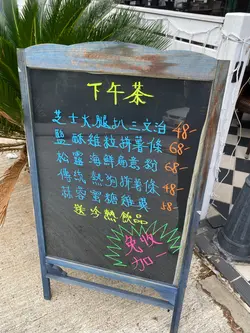 下午茶
芝士火腿扒三文治 48-
鹽酥雞粒拼薯條 68-
松露海鮮扁意粉 68-
傳統熱狗拼薯條 48-
蒜蓉蜜糖雞翼 58-
送冷熱飲品
免收
加一